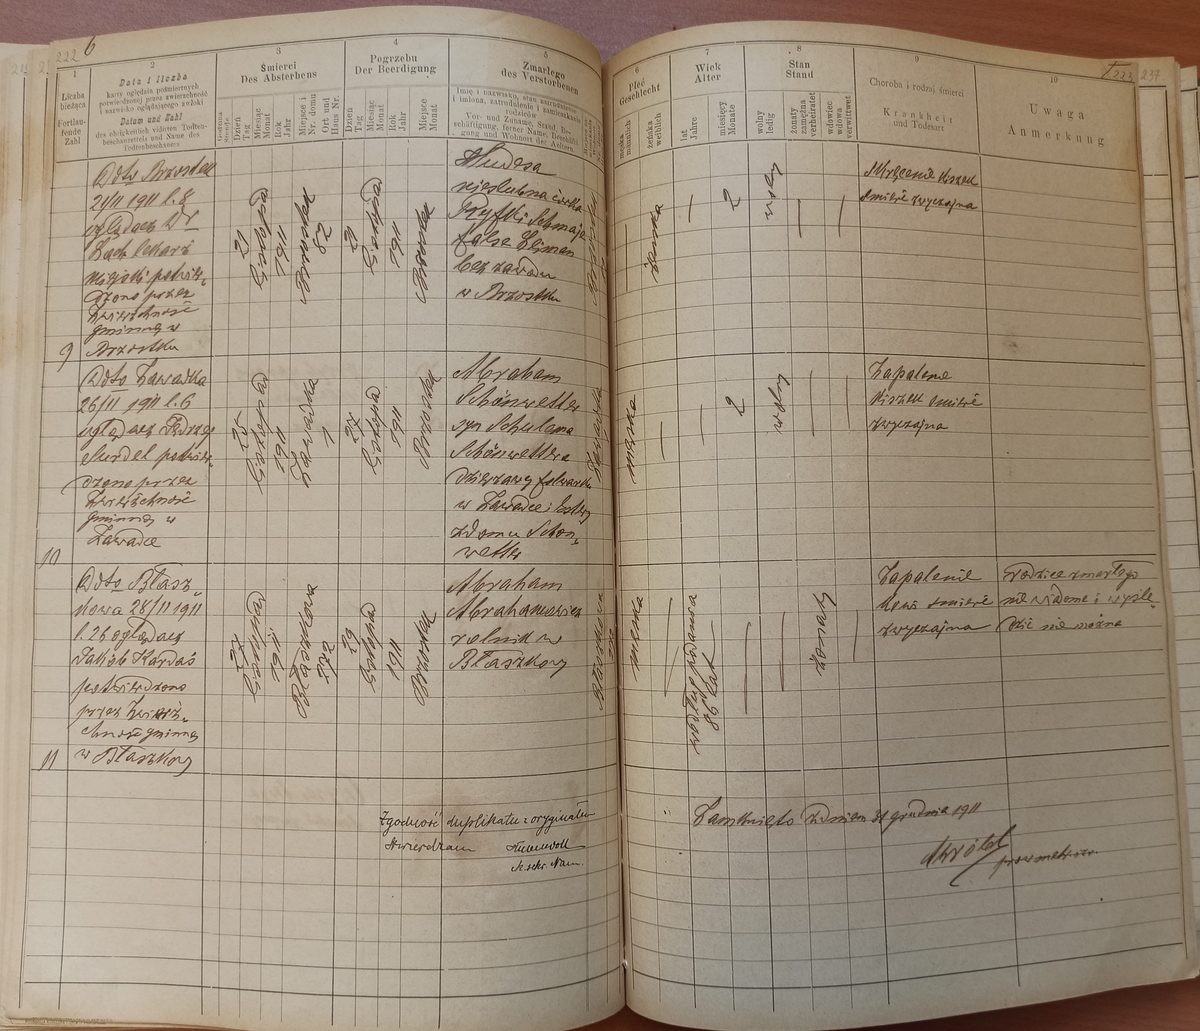 222 6
1
Liczba
bieżąca
Fortlau-
fende
Zahl
2
Data i liczba
karty oględzin pośmiertnych
potwierdzonej przez zwierzchność
i nazwisko oglądającego zwłoki
Datum und Zahl
des obrigkeitlich vidirten Todten-
beschauzettels und Name des
Todtenbeschauers
3
Śmierci
Des Absterbens
Dzień
Tag
Miesiąc
Monat
Rok
Jahr
Miejsce i
Nr. domu
Ort und
Haus Nr.
4
Pogrzebu
Der Beerdigung
Dzień
Tag
Miesiąc
Monat
Rok
Jahr
Miejsce
Monat
5
Zmarłego
des Verstorbenen
Imię i nazwisko, stan, zatrudnienie
i imiona, zatrudnienie i zamieszkanie
rodziców
Vor- und Zuname, Stand, Be-
schäftigung, ferner Name, Beschäfti-
gung und Wohnort der Aeltern
6
Płeć
Geschlecht
męska
männlich
żeńska
weiblich
7
Wiek
Alter
lat
Jahre
miesięcy
Monate
8
Stan
Stand
wolny
ledig
żonaty
zamężna
verheiratet
wdowiec
wdowa
verwittwet
9
Choroba i rodzaj śmierci
Krankheit
und Todesart
10
Uwaga
Anmerkung
223
237
9
Ddto Brzostek
21/11 1911 l. 8
oglądacz Dr
lekarz
miejski potwier-
dzono przez
Zwierzchność
gminną w
Brzostku
12
listopad
1911
28
12
listopad
1911
Brzostek
Hudesa
nieślubna córka
false
bez zawodu
w Brzostku
żeńska
—
2
wolny
—
—
Skręcenie kiszek
śmierć zwyczajna
10
Ddto Zawadka
26/11 1911 l. 6
oglądacz Jędrzej
Surdel potwier-
dzono przez
Zwierzchność
gminną w
Zawadce
25
listopad
1911
Zawadka
1
listopad
1911
Brzostek
Abraham
Schönwetter
syn Schulema
Schönwettera
dzierżawcy folwarku
w Zawadce i Estery
z domu Schön-
wetter
Zawadka
męska
—
—
2
wolny
—
—
Zapalenie
kiszek śmierć
zwyczajna
11
Ddto Błasz-
kowa 28/11 1911
l. 26 oglądacz
Jakób Kardaś
potwierdzono
przez Zwierz-
chność gminną
w Błaszkowy
27
listopad
1911
Błaszkowa
listopad
1911
Brzostek
Abraham
Abrahamowicz
rolnik w
Błaszkowy
Błaszkowa
męska
—
według podania
86 lat
—
—
żonaty
—
Zapalenie
śmierć
zwyczajna
rodzice zmarłego
nie wiadome i wyśle-
dzić nie można
Zgodność duplikatu z oryginałem
stwierdzam
Zamknięto z dniem 31 grudnia 1911